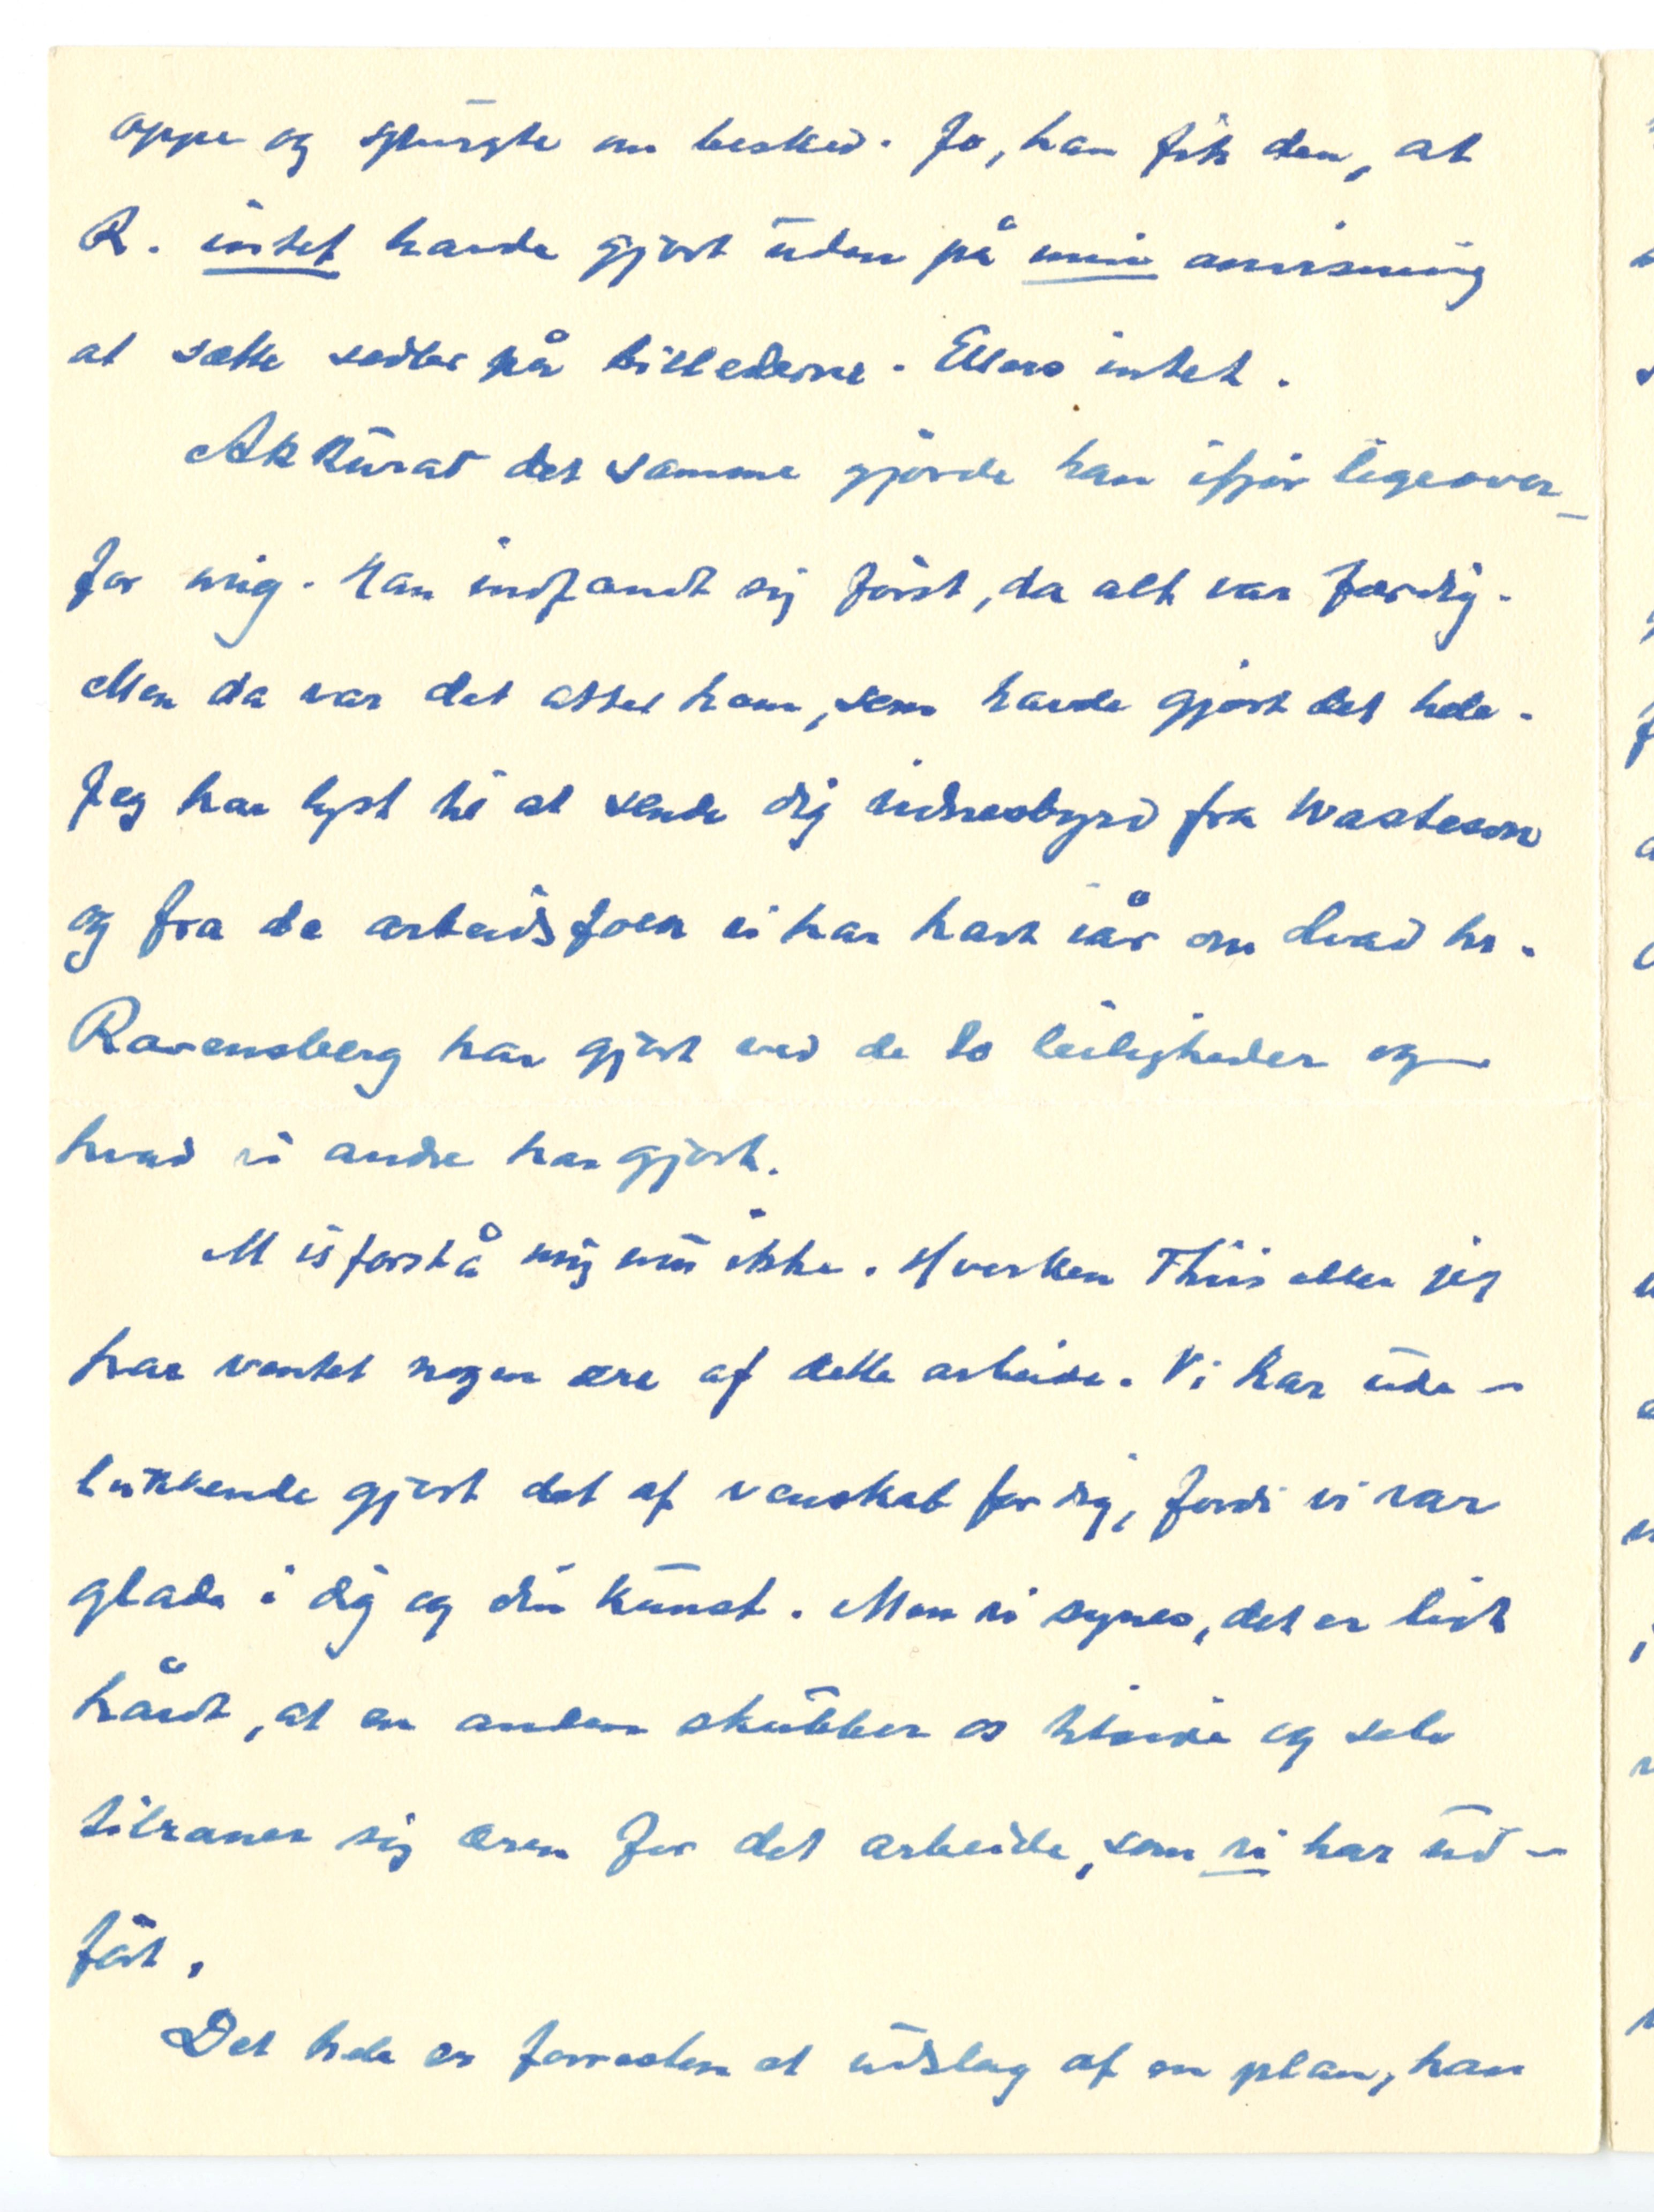 oppe og spurgte om besked. Jo, han fik den, at
R. intet havde gjort uden på min anvisning
at sætte sedler på billederne. Ellers intet.
Akkurat det samme gjorde han ifjor ligeover-
for mig. Han indfandt sig først, da alt var færdig.
Men da var det atter ham, som havde gjort det hele.
Jeg har lyst til at sende dig vidnesbyrd fra Wasteson
og fra de arbeidsfolk vi har havt iår om hvad hr.
Ravensberg har gjort ved de to leiligheder og
hvad vi andre har gjort.
Misforstå mig nu ikke. Hverken Thiis eller jeg
har ventet nogen ære af dette arbeide. Vi har ude-
lukkende gjort det af venskab for dig, fordi vi var
glade i dig og din kunst. Men vi synes, det er lidt
hårdt, at en anden skubber os tilside og selv
tilraner sig æren for det arbeide, som vi har ud-
ført.
Det hele er forresten et udslag af en plan, han